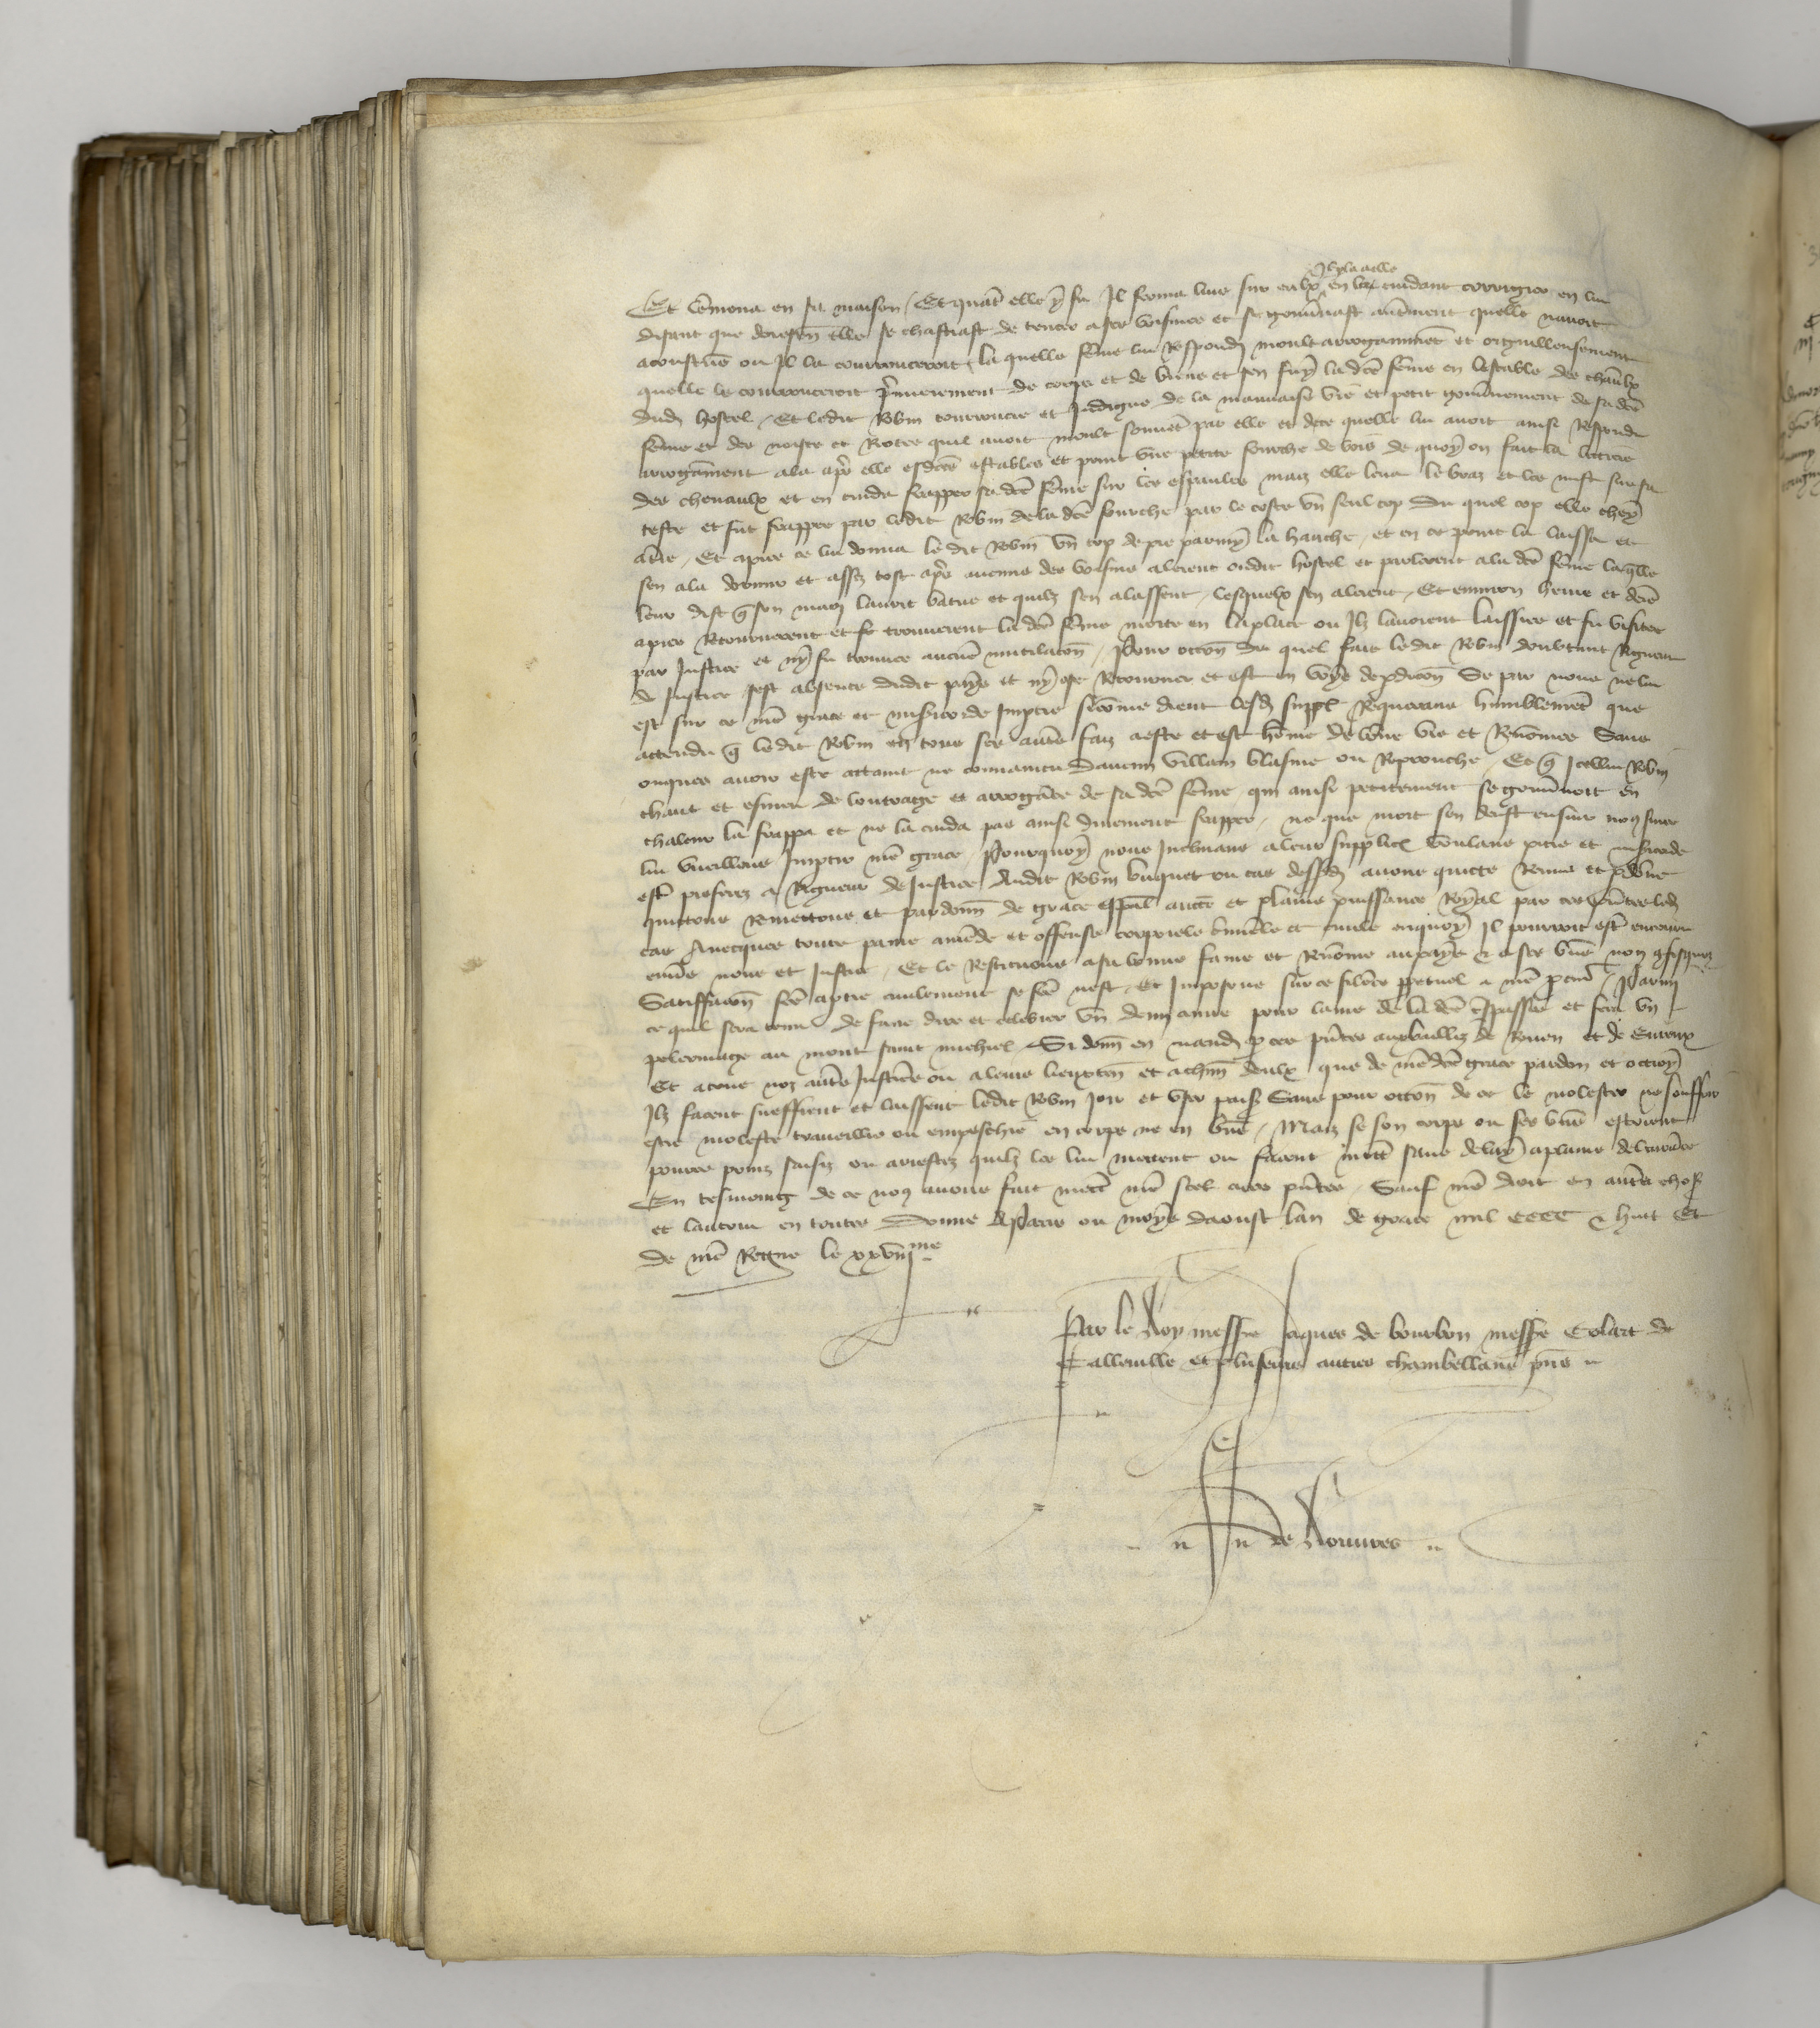 Et lemena en sa maison / Et quāt elle y fu Il ferma luis sur eulx en la cuidant corrigier en lui
disant que doresen elle se chastiast de tencer a ses voisines et se gouvnast autrement quelle navoit
acoustume ou Il la courrouceroit / la quelle feme lui Respondi moult arrogamment et orguilleusement
quelle le courrouceroit premierement de corps et de biens et sen fuy lad feme en lestable des chevaulx
dud hostel / Et ledit Robin courroucie et Indigne de la mauvaise vie et petit gouvnement de sa dce
feme et des noises et Riotes quil avoit moult souvent par elle et de ce quelle lui avoit ainsi Respondu
arrogāment ala apres elle esdces estables et print une petite fourche de bois de quoy on fait la lictiere
des chevaulx et en cuida frapper sa dce feme sur les espaules maiz elle leva le braz et les mist sur sa
teste et fut frappee par ledit Robin de la dce fourche par le coste un seul cop du quel cop elle chey
a tre / Et apres ce lui donna le dit Robin un cop de pie parmy la hanche / et en ce point la laissa et
sen ala dormir et assez tost apres aucuns des voisins alerent oudit hostel et parlerent a la dce feme laqlle
leur dist q son mary lavoit batue et quilz sen alassent / lesquelx sen alerent / Et environ heure et demie
apres Retournerent et se trouverent la dce feme morte en la place ou Ilz lavoient laissiee et fu visitee
par Justice et ny fu trouvee aucune mutilacon / Pour occon du quel fait le dit Robin doubtant Rigueur
de Justice sest absente dudit pays et ny ose Retourner et est en voye de perdicon Se par nous ne lui
est sur ce nre grace et misericorde Impartie si come dient lesd suppl Requerans humblement que
attendu q ledit Robin en tous ses autres faiz a este et est home de bone vie et Renomee Sans
onques avoir este attaint ne convaincu daucun villain blasme ou Reprouche / Et q Icellui Robin
chaut et esmeu de loutrage et arrogāce de sa dce feme qui ainsi petitement se gouvnoit en
chaleur la frappa et ne la cuida pas ainsi durement frapper / ne que mort sen deust ensuir nous sur ce
lui vueillons Impartir nre grace / Pourquoy nous Inclinans a leur supplicacon voulans pitie et misericorde
estre preferez a Rigueur de Justice Audit Robin buquet ou cas dessusd avons quicte Remis et pardonne
quittons Remettons et pardonn de grace espal aucte et plaine puissance Royal par ces pntes led
cas Avecques toute paine amede et offense corporele criminele et civile en quoy Il pourroit estre encouru
envers nous et Justice / Et le Restituons a sa bonne fame et Renomee au pays & a ses biens non confisquez
Satisffacon fce a ptie civilement se fce nest / Et Imposons sur ce silence perpetuel a nre procur / Parmy
ce quil sera tenu de faire dire et celebrer un demy annuel pour lame de la dce trespassee et fera un
pelerinage au mont saint michiel / Si donn en mand par ces pntes aux bailliz de Rouen et de Evreux
Et a tous noz autres Justiciers ou a leurs lieuxten et a chun deulx que de nre dce grace pardon et octroy
Ilz facent sueffrent et laissent ledit Robin Joir et user paisi Sans pour occon de ce le molester ne souffrir
estre moleste travaillie ou empeschie en corps ne en biens / Maiz se son corps ou ses biens estoient
pour ce prins saisiz ou arrestez quilz les lui mettent ou facent mettre sans delay a plaine delivrace
En tesmoing de ce nous avons fait mettre nre scel a ces pntes / Sauf nre droit en autres choses
et lautrui en toutes Donne A Paris ou moys daoust lan de grace mil CCCC & huit Et
de nre Regne le xxviiime
Par le Roy messire Jaques de bourbon messire Colart de
Calleville et pluseurs autres chambellans pns
n de Rouvres